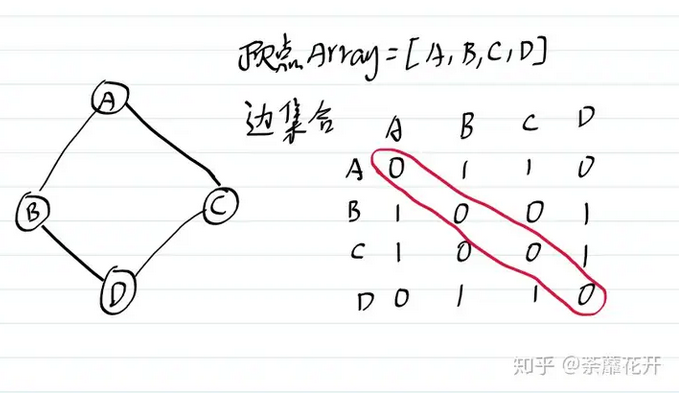 顶点Array=[A,B,C,D]
边集合
A B C D
A 0 1 1 0
B 1 0 0 1
C 1 0 0 1
D 0 1 1 0
A
B
C
D
知乎 @荼蘼花开